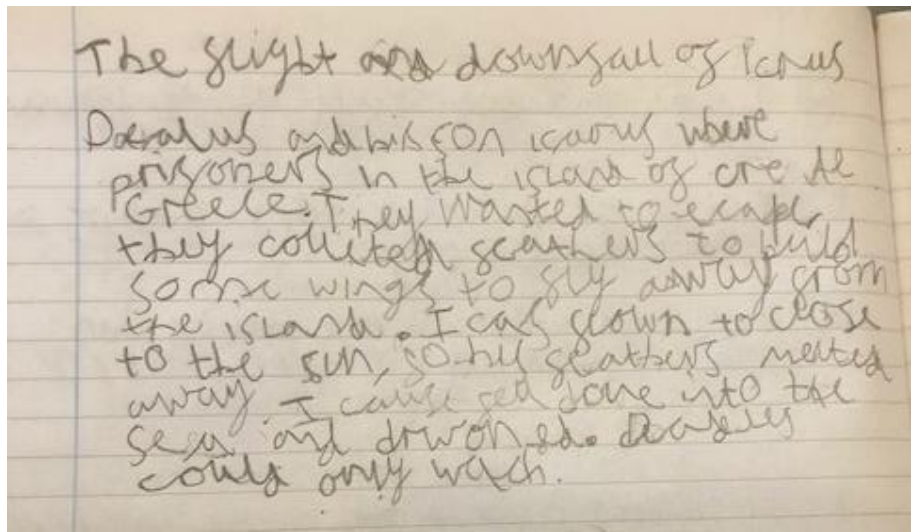 The flight and downfall of icrus
Daedalus and his son icarus where
prisoners in the island of crete
Greece. They wanted to ecape,
they collted feathers to build
some wings to fly away from
the island. Icas flown to close
to the sun, so his feathers melted
away. Icaruse fell done into the
sea and drwoned. Deadlus
could only wach.